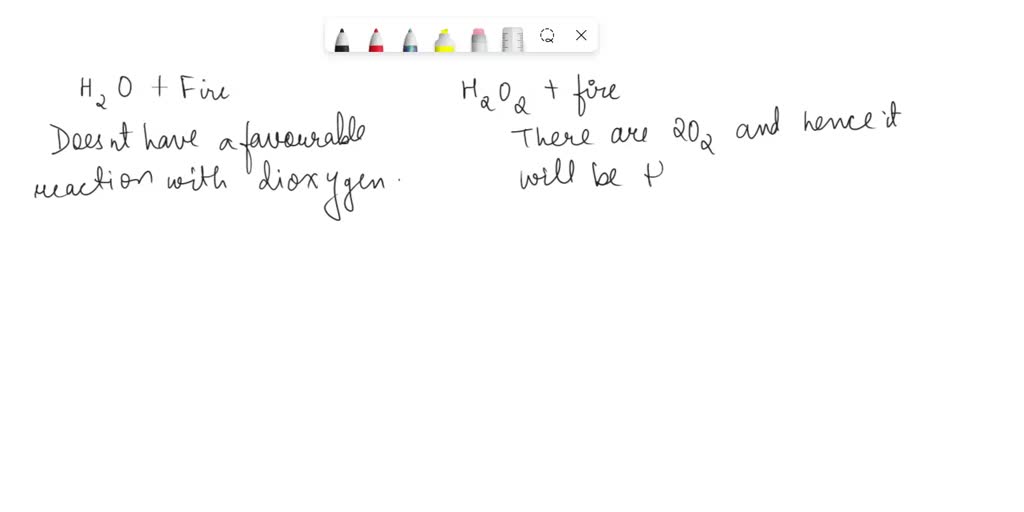 H₂O + Fire
Doesnt have a favourable
reaction with dioxygen.
H₂O₂ + fire
There are 2O₂ and hence it
will be